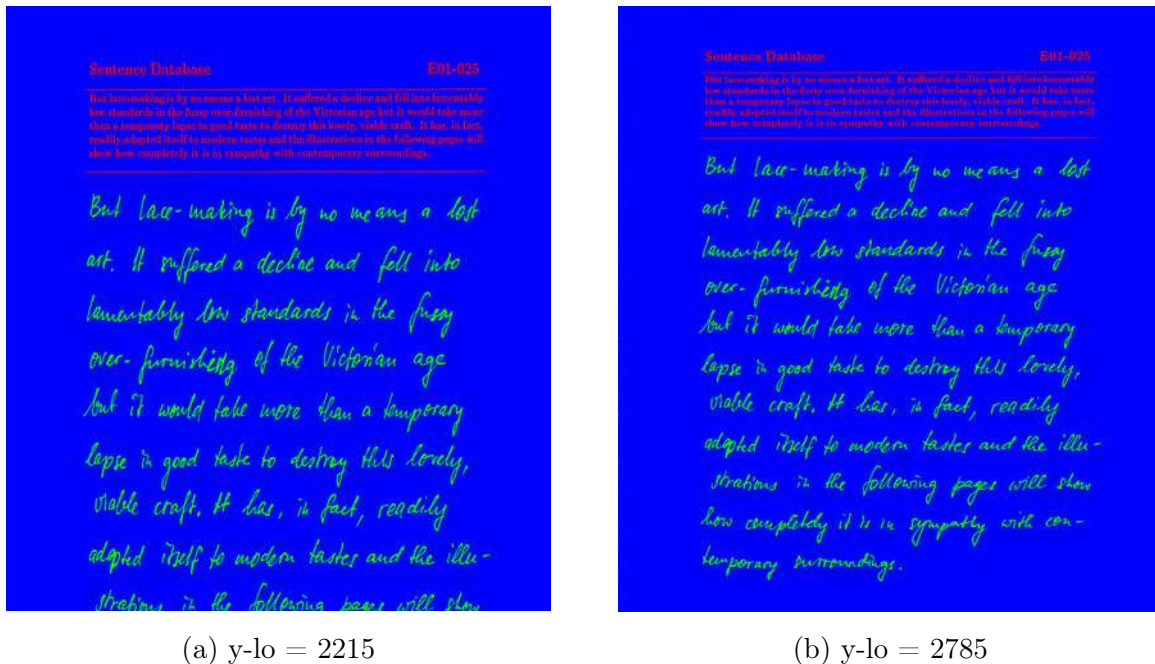 Sentence Database E01-025
But lace-making is by no means a lost art. It suffered a decline and fell into lamentably
low standards in the fussy over-furnishing of the Victorian age but it would take more
than a temporary lapse in good taste to destroy this lovely, viable craft. It has, in fact,
readily adapted itself to modern tastes and the illustrations in the following pages will
show how completely it is in sympathy with contemporary surroundings.
But lace-making is by no means a lost
art. It suffered a decline and fell into
lamentably low standards in the fussy
over-furnishing of the Victorian age
but it would take more than a temporary
lapse in good taste to destroy this lovely,
viable craft. It has, in fact, readily
adapted itself to modern tastes and the illu-
strations in the following pages will show
(a) y-lo = 2215
Sentence Database E01-025
But lace-making is by no means a lost art. It suffered a decline and fell into lamentably
low standards in the fussy over-furnishing of the Victorian age but it would take more
than a temporary lapse in good taste to destroy this lovely, viable craft. It has, in fact,
readily adapted itself to modern tastes and the illustrations in the following pages will
show how completely it is in sympathy with contemporary surroundings.
But lace-making is by no means a lost
art. It suffered a decline and fell into
lamentably low standards in the fussy
over-furnishing of the Victorian age
but it would take more than a temporary
lapse in good taste to destroy this lovely,
viable craft. It has, in fact, readily
adapted itself to modern tastes and the illu-
strations in the following pages will show
how completely it is in sympathy with con-
temporary surroundings.
(b) y-lo = 2785